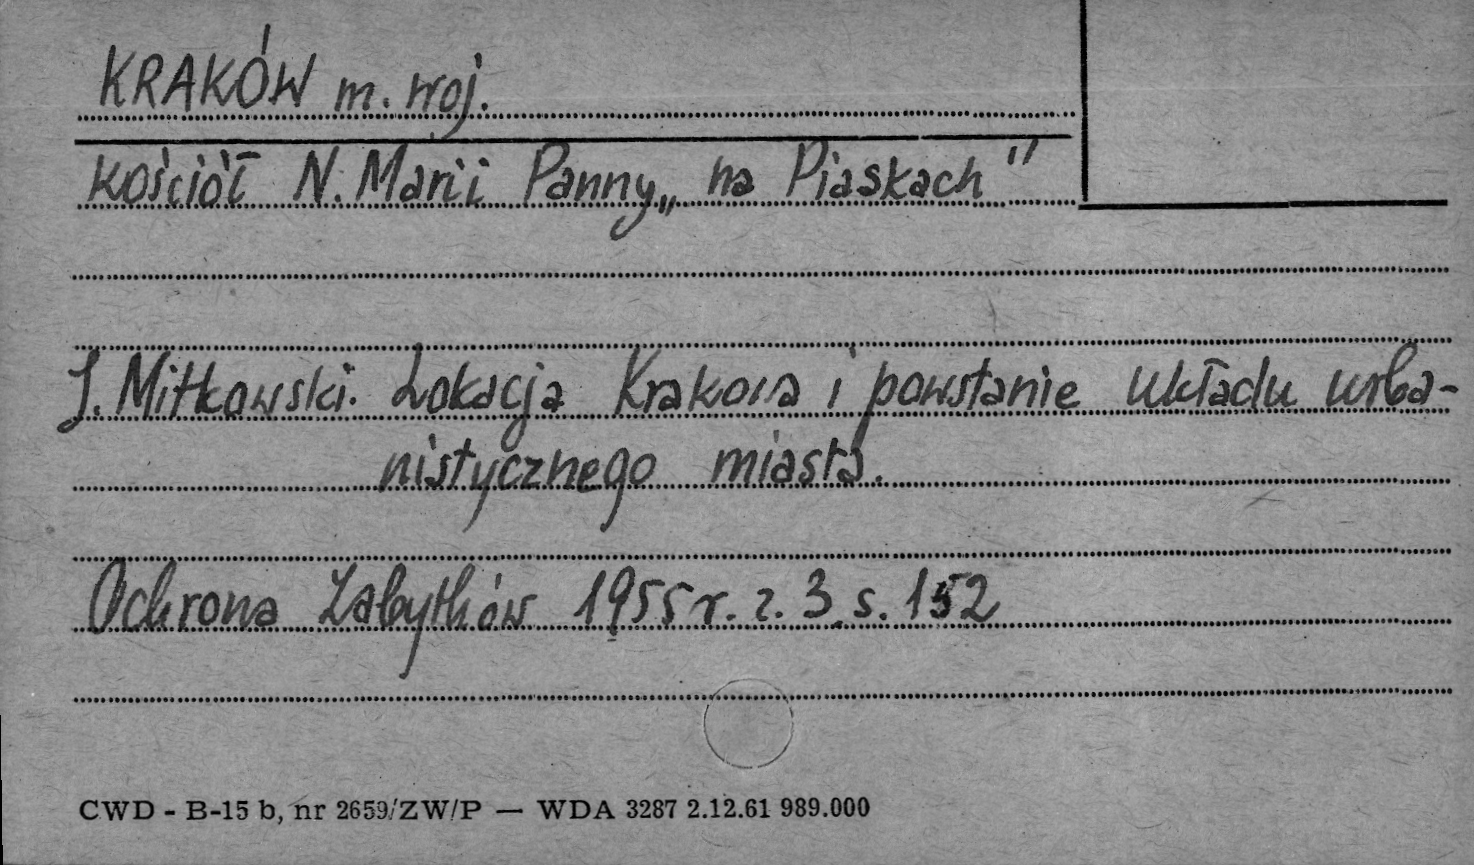 KRAKÓW m. woj.
kościół N. Marii Panny „na Piaskach"
J. Mitkowski. Lokacja Krakowa i powstanie układu urba-
nistycznego miasta.
Ochrona Zabytków 1955 r. z. 3. s. 152
CWD - B-15 b, nr 2659/ZW/P — WDA 3287 2.12.61 989.000